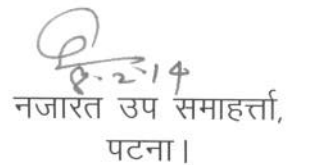 8-2-14
नजारत उप समाहर्त्ता,
पटना।